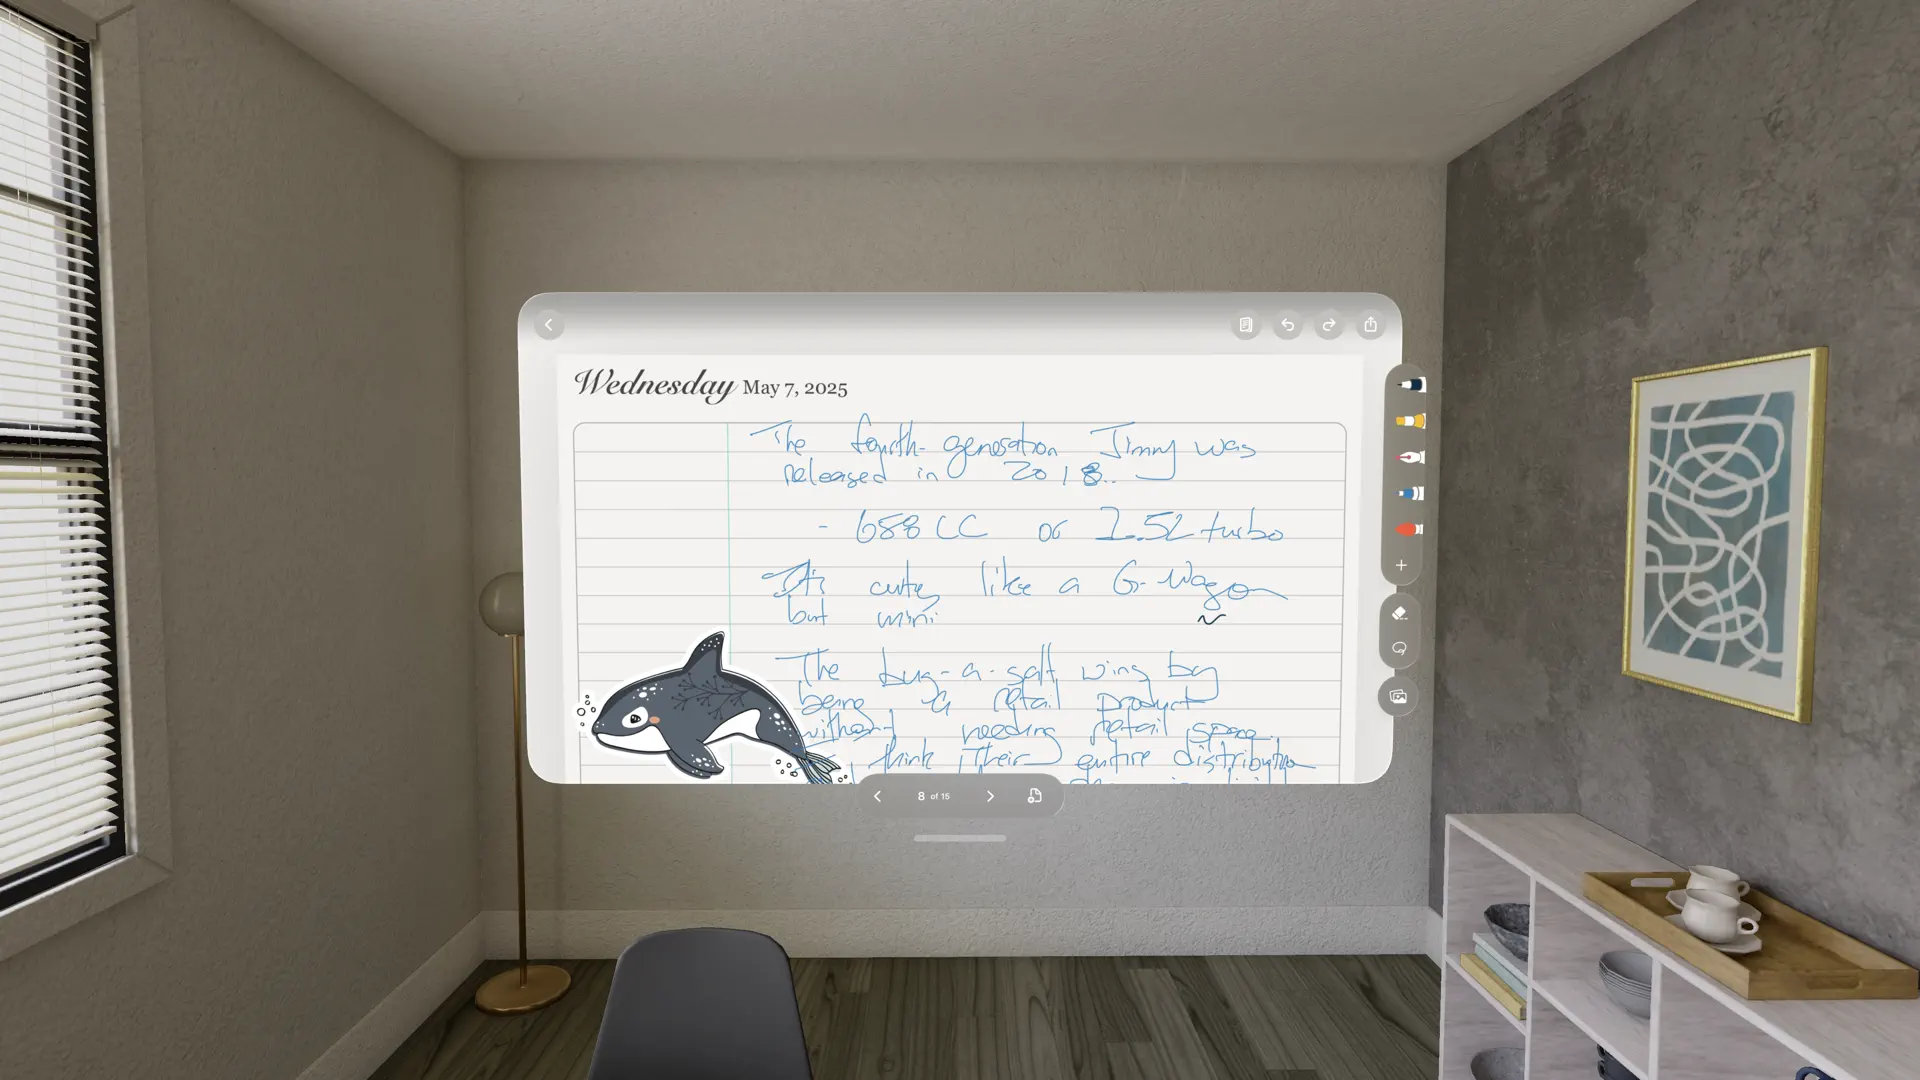 Wednesday May 7, 2025
The fourth-generation Jimny was
released in 2018..
- 658 CC or 1.5L turbo
It's cute, like a G-Wagon
but mini
The bug-a-salt wins by
being a retail product
without needing retail space.
think Their entire distribution
8 of 15